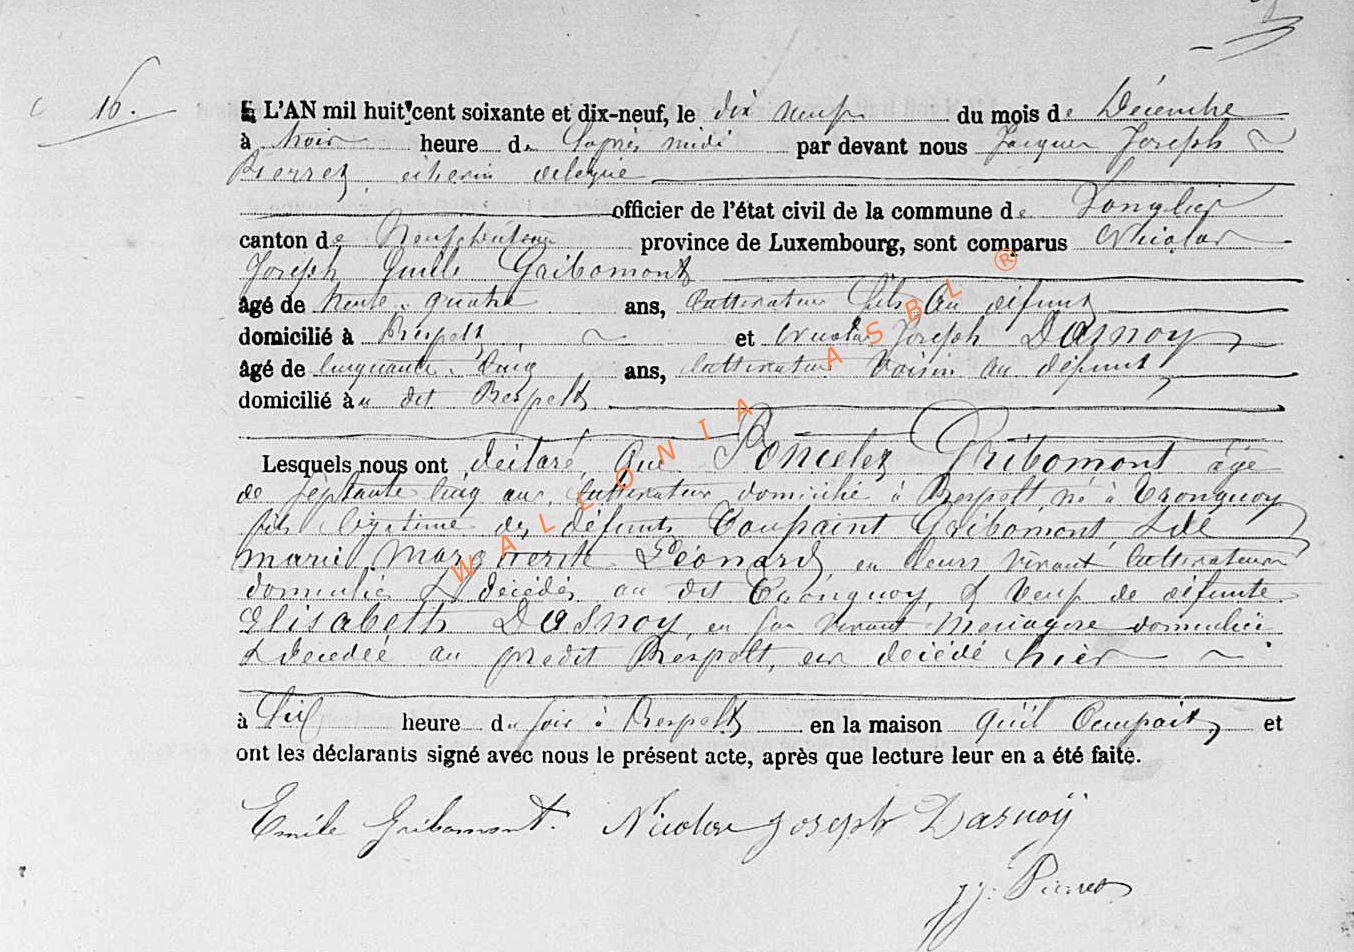 16.
L'AN mil huit cent soixante et dix-neuf, le dix neuf du mois de Décembre
à trois heure de l'après midi par devant nous Jacques Joseph
Pierret, échevin délégué
officier de l'état civil de la commune de Longlier
canton de Neufchateau province de Luxembourg, sont comparus Nicolas
Joseph Emile Gribomont
âgé de trente quatre ans, cultivateur fils du défunt
domicilié à Respelt et Nicolas Joseph Dasnoy
âgé de cinquante cinq ans, cultivateur voisin du défunt
domicilié au dit Respelt
Lesquels nous ont déclaré que Poncelet Gribomont âgé
de septante cinq ans, cultivateur domicilié à Respelt, né à Tronquoy
fils légitime des défunts Toupaint Gribomont, & de
Marie Marguerite Léonard, en leurs vivant cultivateurs
domiciliés & décédés au dit Tronquoy, & veuf de défunte
Elisabeth Dasnoy, en son vivant ménagère domiciliée
& décédée au prédit Respelt, est décédé hier
à six heure du soir à Respelt en la maison qu'il occupait, et
ont les déclarants signé avec nous le présent acte, après que lecture leur en a été faite.
Emile Gribomont. Nicolas Joseph Dasnoÿ
JJ. Pierret
WALLONIA ASBL ®